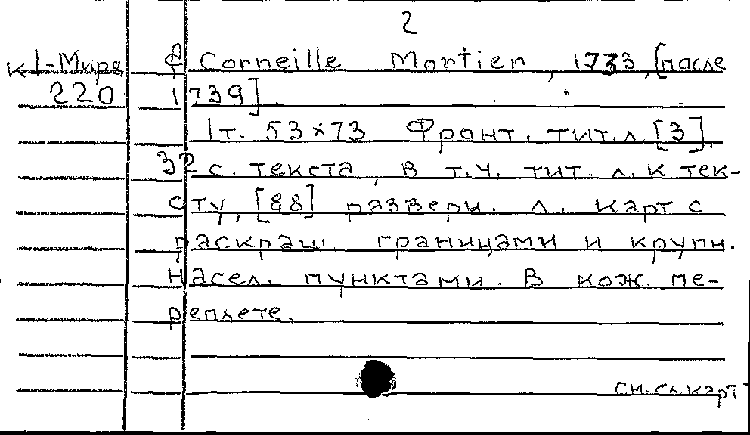 2
к 1-Мира & Corneille Mortier, 1733, [после
220 1739].
1 т. 53×73 Фронт., тит. л. [3],
32 с. текста, в т.ч. тит. л. к тек-
сту, [88] разверн. л. карт с
раскраш. границами и крупн.
насел. пунктами. В кож. пе-
реплете.
см. сл. карт